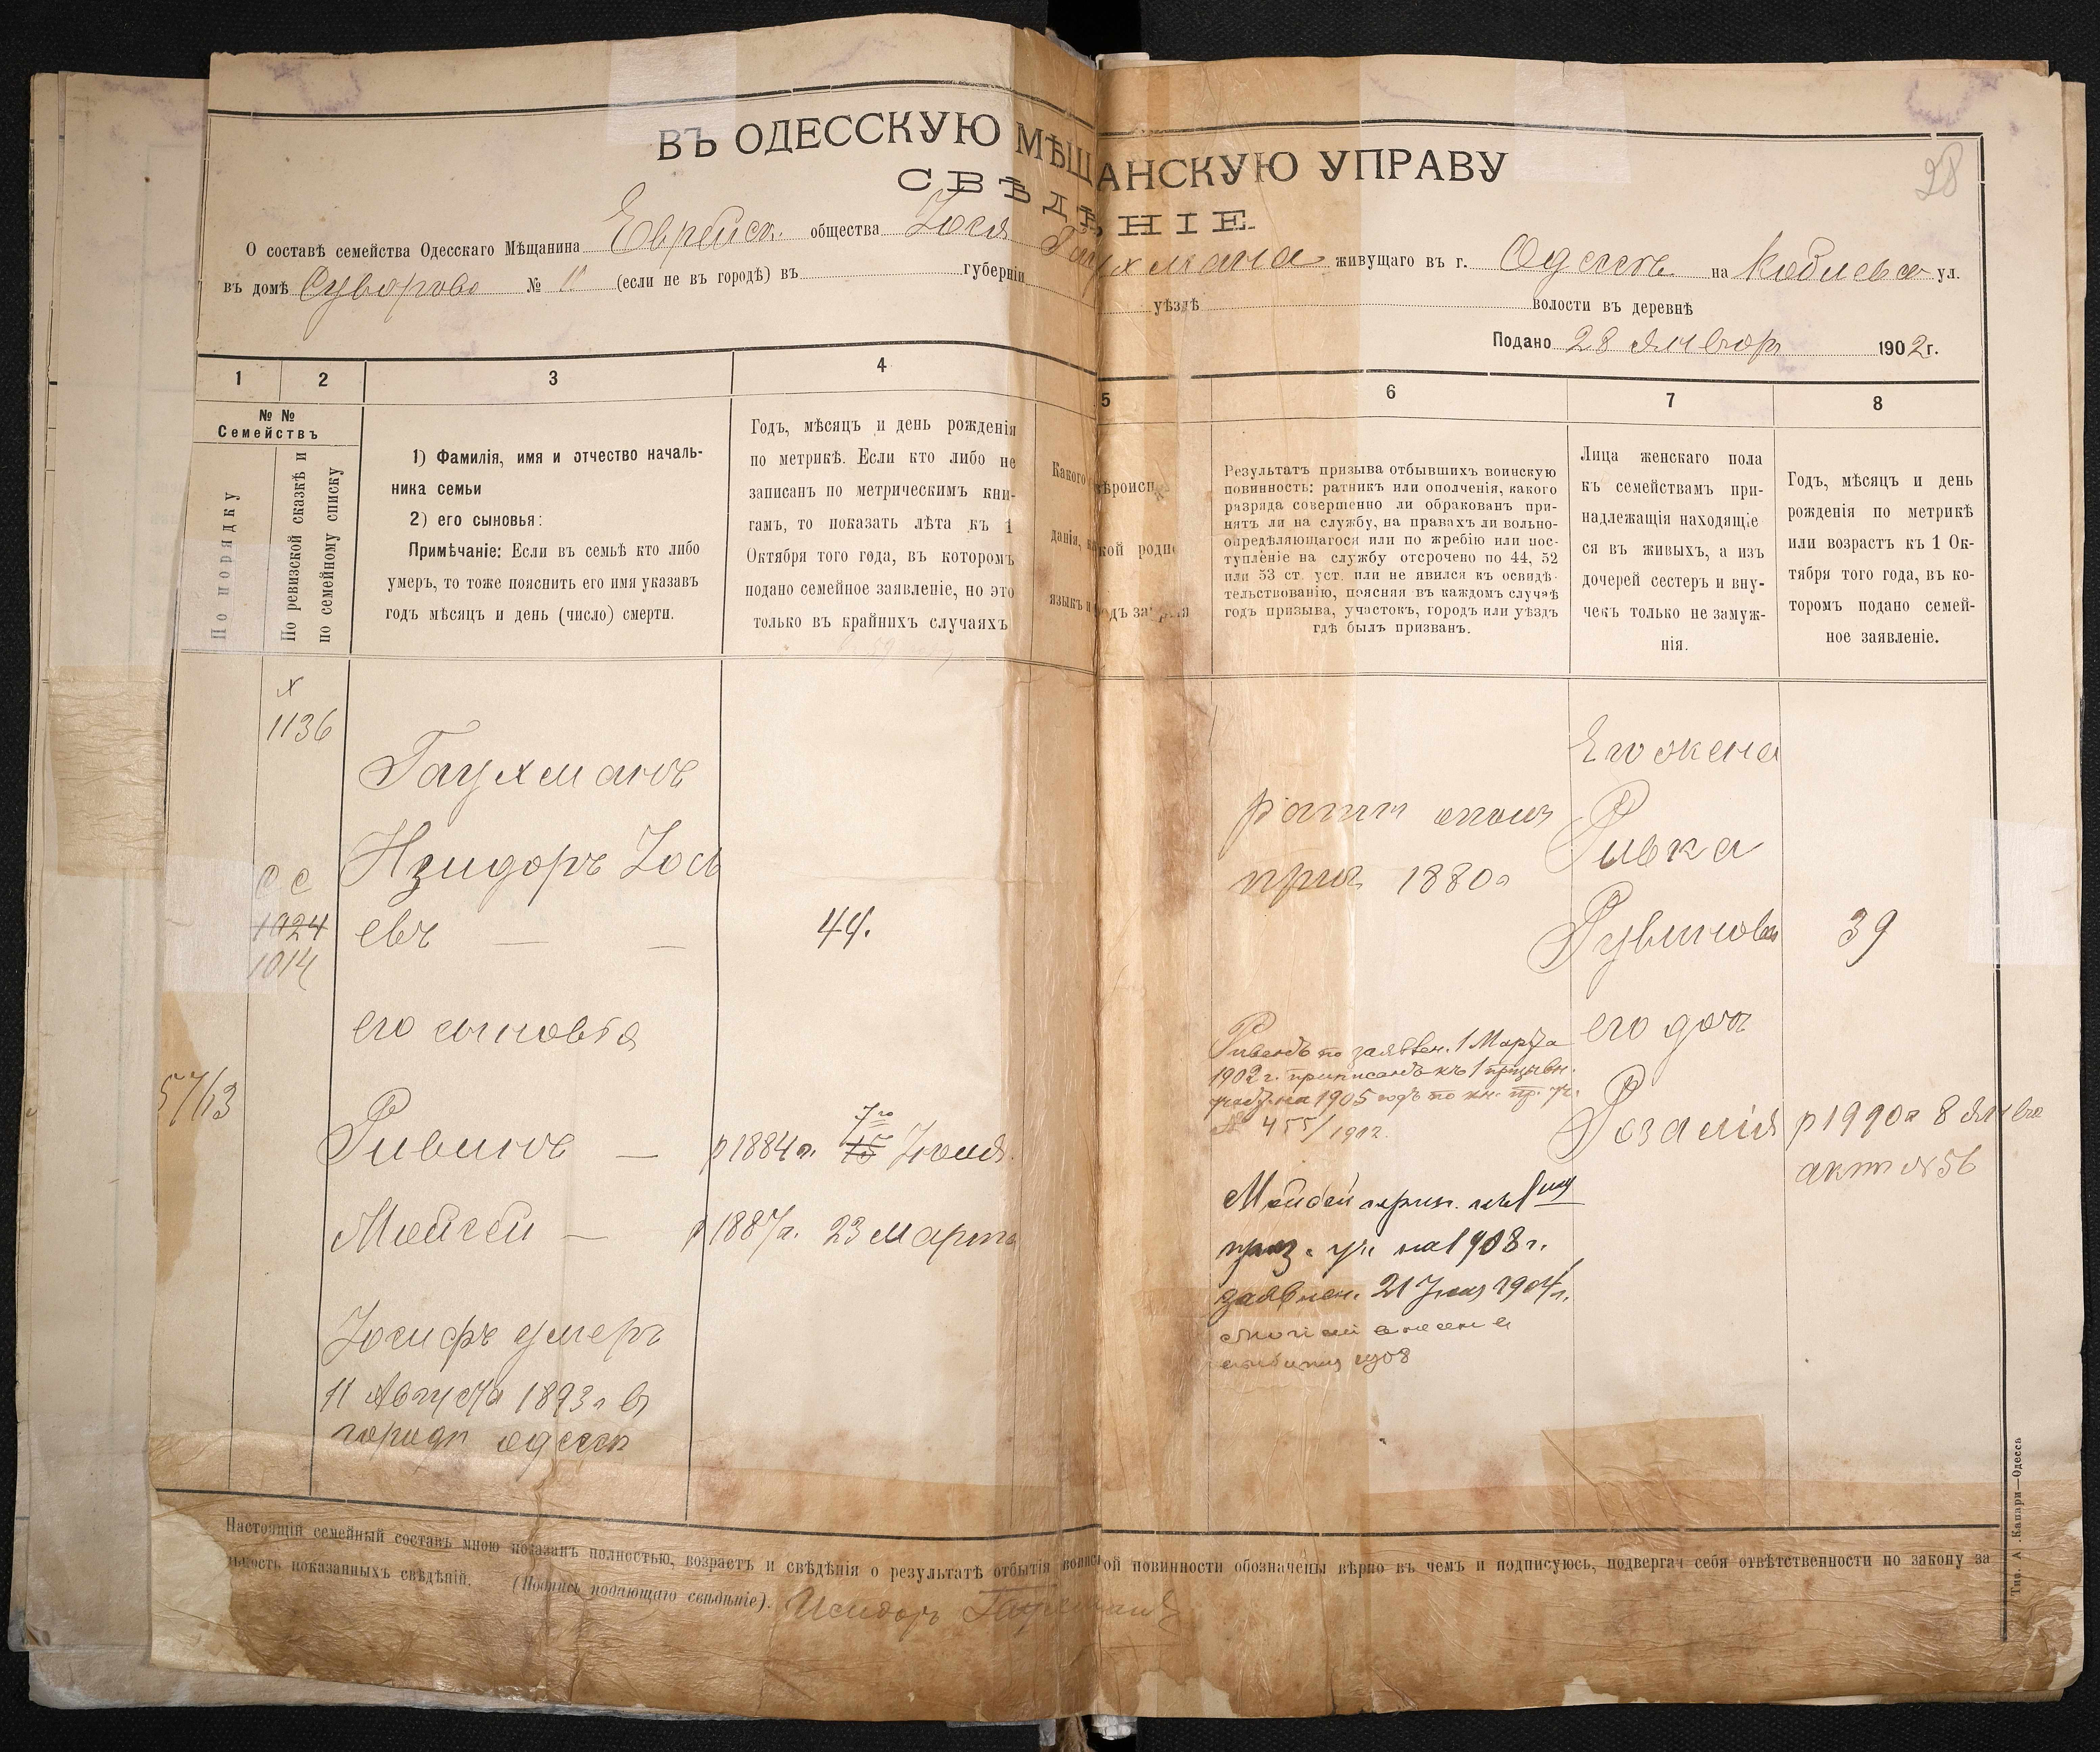 ВЪ ОДЕССКУЮ МѢЩАНСКУЮ УПРАВУ
28
СВѢДѢНІЕ
О составѣ семейства Одесскаго Мѣщанина Еврейск. общества Іося Гаухмана живущаго въ г. Одессѣ на Коблевск ул.
въ домѣ Суворово № 11 (если не въ городѣ) въ губерніи уѣздѣ волости въ деревнѣ
Подано 28 Январ 1902 г.
1 2 3 4 5 6 7 8
№ №
Семействъ
По порядку
По ревизской сказкѣ и
по семейному списку
1) Фамилія, имя и отчество началь-
ника семьи
2) его сыновья:
Примѣчаніе: Если въ семьѣ кто либо
умеръ, то тоже пояснить его имя указавъ
годъ мѣсяцъ и день (число) смерти.
Годъ, мѣсяцъ и день рожденія
по метрикѣ. Если кто либо не
записанъ по метрическимъ кни-
гамъ, то показать лѣта къ 1
Октября того года, въ которомъ
подано семейное заявленіе, но это
только въ крайнихъ случаяхъ
Какого вѣроиспо
данія,
языкъ и
Результатъ призыва отбывшихъ воинскую
повинность: ратникъ или ополченія, какого
разряда совершенно ли обракованъ при-
нятъ ли на службу, на правахъ ли вольно-
опредѣляющагося или по жребію или пос-
тупленіе на службу отсрочено по 44, 52
или 53 ст. уст. или не явился къ освидѣ-
тельствованію, поясняя въ каждомъ случаѣ
годъ призыва, участокъ, городъ или уѣздъ
гдѣ былъ призванъ.
Лица женскаго пола
къ семействамъ при-
надлежащія находящіе
ся въ живыхъ, а изъ
дочерей сестеръ и вну-
чекъ только не замуж-
нія.
Годъ, мѣсяцъ и день
рожденія по метрикѣ
или возрастъ къ 1 Ок-
тября того года, въ ко-
торомъ подано семей-
ное заявленіе.
1136
Гаухманъ
Изидоръ Іось
евъ — —
44.
СС
1024
1014
его сыновья
57/13
Ривинъ — р 1884 г. 15 7го Іюля
Мойсей — р 1887 г. 23 Марта
Іосифъ умеръ
11 Августа 1893 г в
городѣ одессѣ
ратн опол
приз 1880 г
Рувенъ по заявлен. 1 Марта
1902 г. приписанъ къ 1 призывн.
участ. на 1905 годъ по кн. пр. уч.
№ 455/1902.
Мойсей припис. къ 1му
приз. уч. на 1908 г.
заявлен. 21 1904 г.
1908
Его жена
Ривка
Рувинова
39
его дочь
Розалія
р 1990 г 8 Янва
актъ № 56
Настоящій семейный составъ мною показанъ полностью, возрастъ и свѣдѣнія о результатѣ отбытія воинской повинности обозначены вѣрно въ чемъ и подписуюсь, подвергая себя отвѣтственности по закону за
показанныхъ свѣдѣній. (Подпись подающаго свѣдѣніе). Исидоръ Гаухманъ
Тип. А. Капари—Одесса